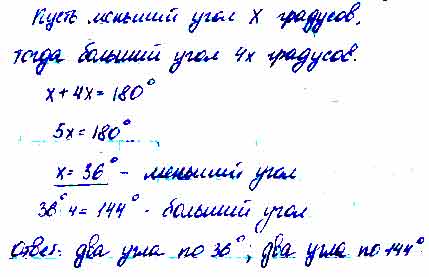 Пусть меньший угол x градусов,
тогда больший угол 4x градусов.
x + 4x = 180°
5x = 180°
x = 36° - меньший угол
36° 4 = 144° - больший угол
Ответ: два угла по 36°, два угла по 144°